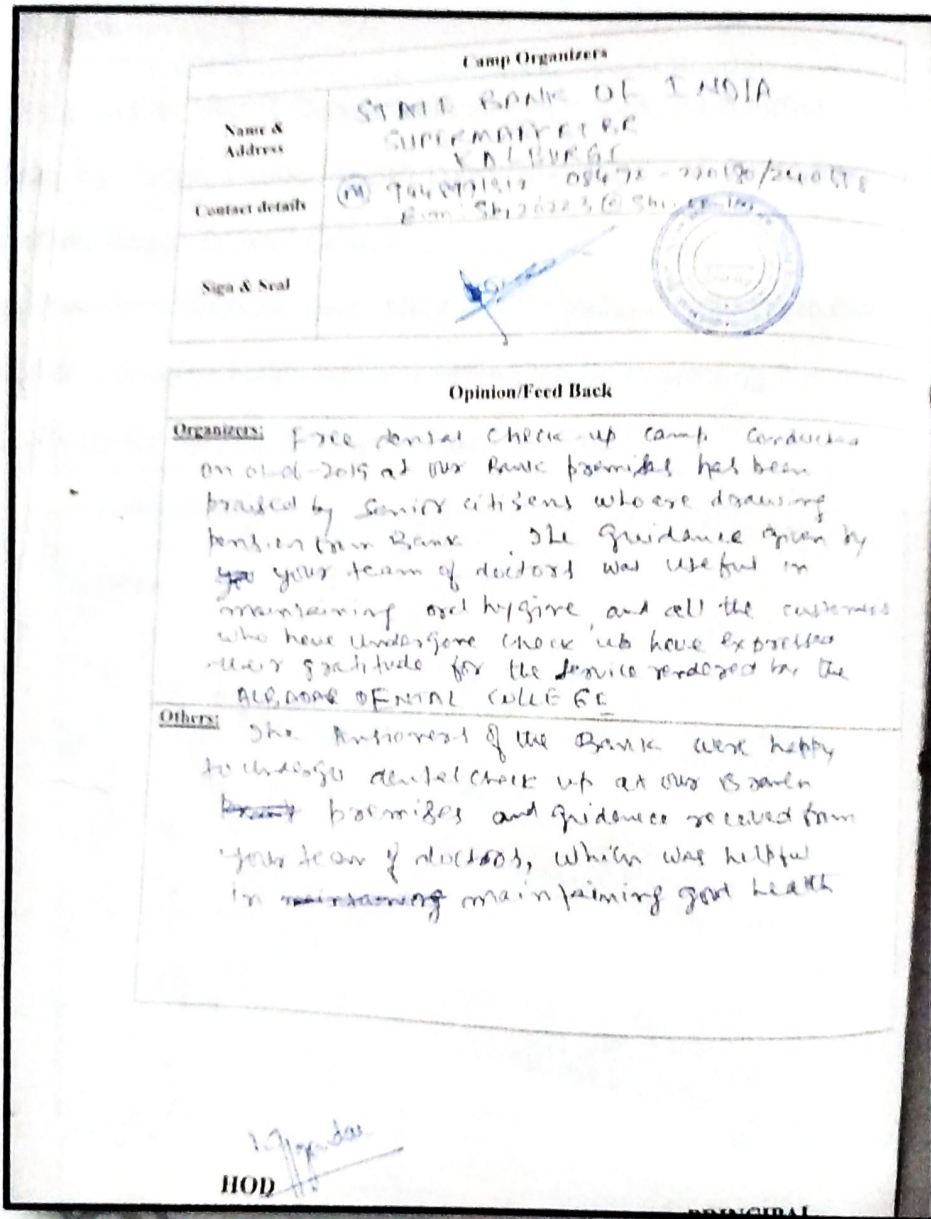 Camp Organizers
Name &
Address
STATE BANK OF INDIA
SUPERMARKET BR
KALBURGI
Contact details
Sign & Seal
Opinion/Feed Back
Organizers: Free dental check-up camp conducted
at our Bank premises has been
praised by senior citisens who are drawing
pension from Bank. The guidance given by
your team of doctors was useful in
maintaining oral hygine, and all the customers
who have undergone check up have expressed
their gratitude for the service rendered by the
DENTAL COLLEGE
Others: The Pensioners of the Bank were happy
to undergo dental check up at our Branch
premises and guidance received from
your team of doctors, which was helpful
in maintaining maintaining good health
HOD
PRINCIPAL